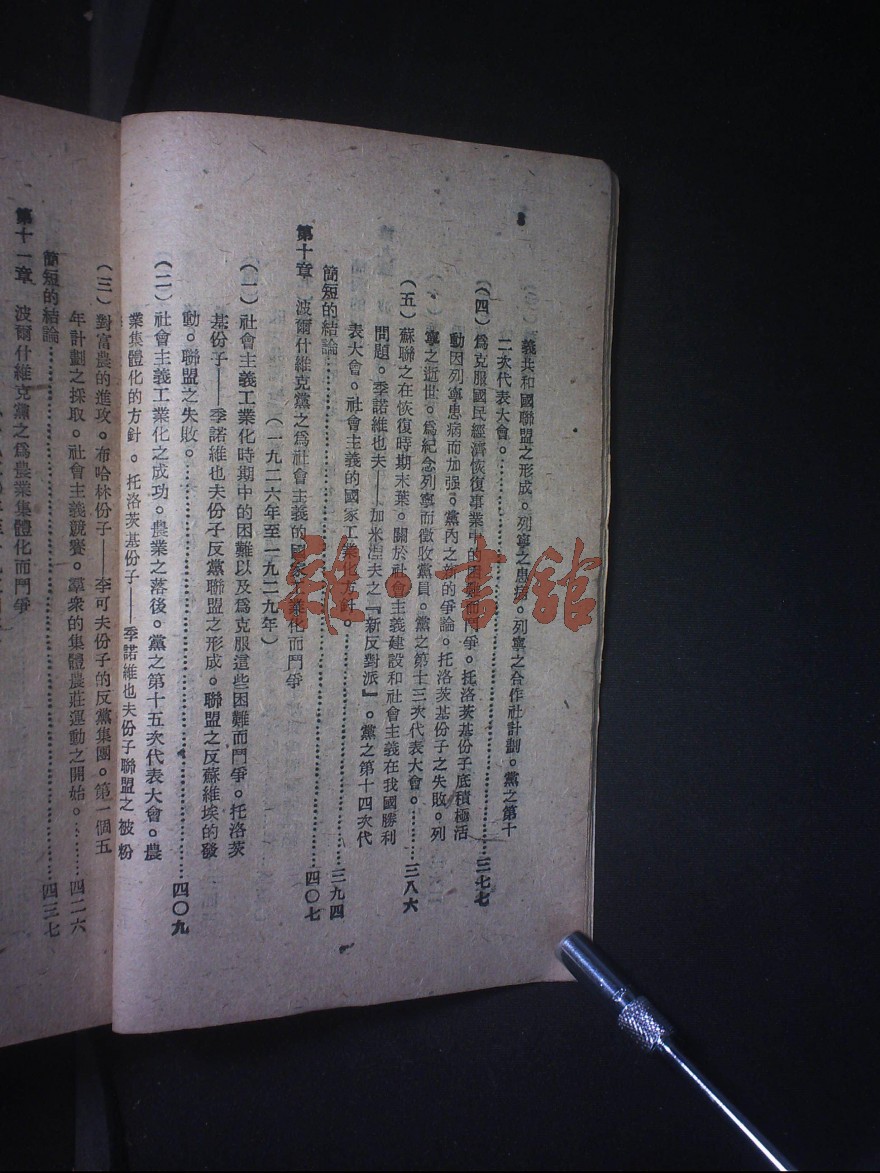 8
義共和國聯盟之形成。列寧之患病。列寧之合作社計劃。黨之第十
二次代表大會。
（四）爲克服國民經濟恢復事業中的困難而鬥爭。托洛茨基份子底積極活
動因列寧患病而加强。黨內之新的爭論。托洛茨基份子之失敗。列
寧之逝世。爲紀念列寧而徵收黨員。黨之第十三次代表大會。……三七七
（五）蘇聯之在恢復時期末葉。關於社會主義建設和社會主義在我國勝利
問題。季諾維也夫——加米湼夫之『新反對派』。黨之第十四次代
表大會。社會主義的國家工業化方針。……三八六
簡短的結論……三九四
第十章 波爾什維克黨之爲社會主義的國家工業化而鬥爭
（一九二六年至一九二九年）……四〇七
（一）社會主義工業化時期中的困難以及爲克服這些困難而鬥爭。托洛茨
基份子——季諾維也夫份子反黨聯盟之形成。聯盟之反蘇維埃的發
動。聯盟之失敗。……四〇九
（二）社會主義工業化之成功。農業之落後。黨之第十五次代表大會。農
業集體化的方針。托洛茨基份子——季諾維也夫份子聯盟之被粉
（三）對富農的進攻。布哈林份子——李可夫份子的反黨集團。第一個五
年計劃之採取。社會主義競賽。羣衆的集體農莊運動之開始。……四二六
簡短的結論……四三七
第十一章 波爾什維克黨之爲農業集體化而鬥爭
雜·書館